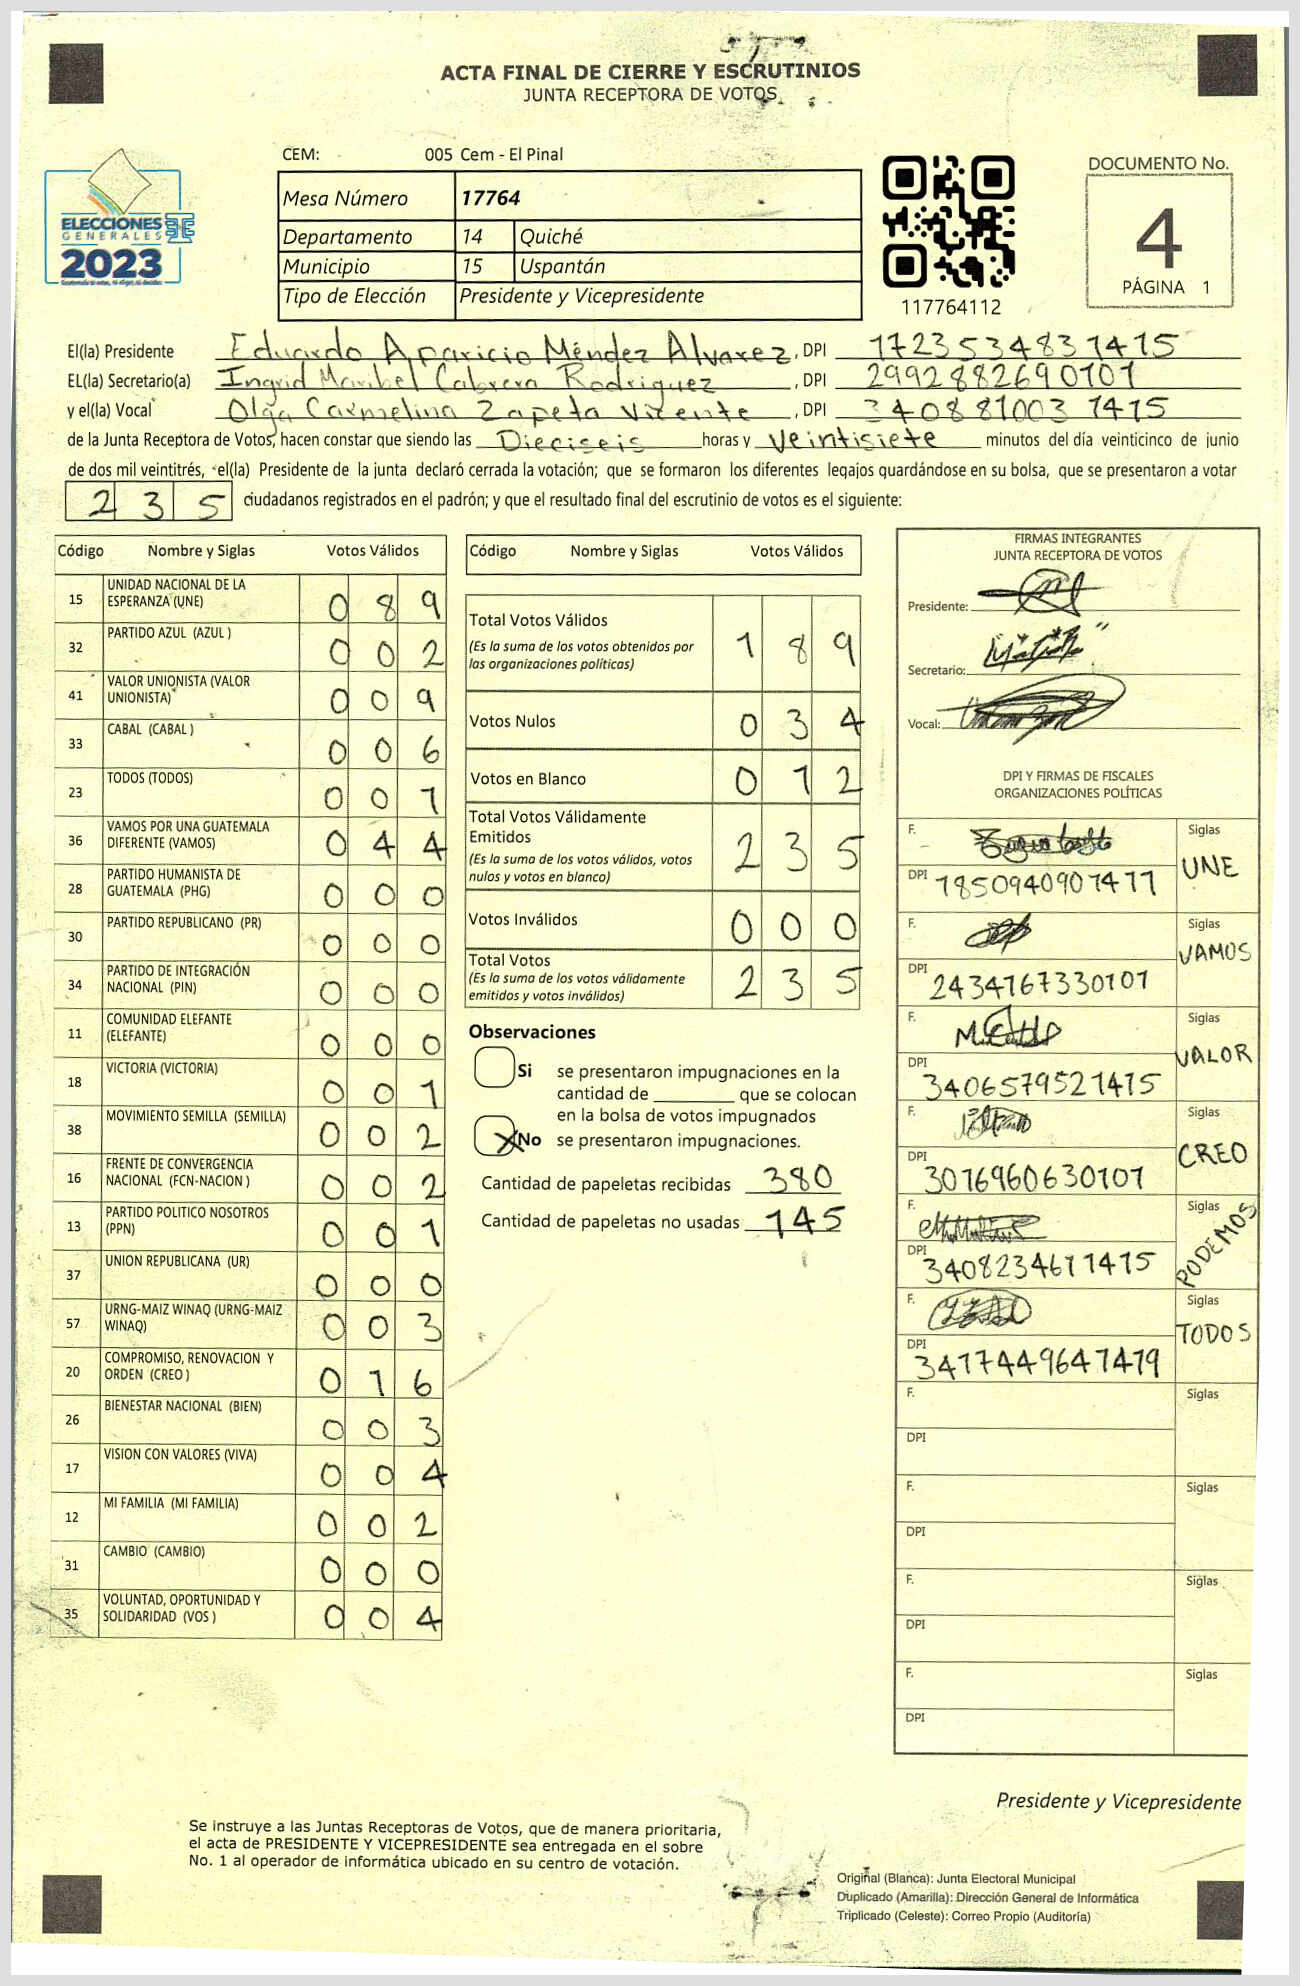 ACTA FINAL DE CIERRE Y ESCRUTINIOS
JUNTA RECEPTORA DE VOTOS
CEM: 005 Cem - El Pinal
ELECCIONES
GENERALES
2023
Mesa Número 17764
Departamento 14 Quiché
Municipio 15 Uspantán
Tipo de Elección Presidente y Vicepresidente
117764112
DOCUMENTO No.
4
PÁGINA 1
El(la) Presidente Eduardo Aparicio Méndez Alvarez, DPI 1723534831415
EL(la) Secretario(a) Ingrid Maribel Cabrera Rodriguez, DPI 2992882690101
y el(la) Vocal Olga Carmelina Zapeta Vicente, DPI 3408810031415
de la Junta Receptora de Votos, hacen constar que siendo las Dieciseis horas y veintisiete minutos del día veinticinco de junio
de dos mil veintitrés, el(la) Presidente de la junta declaró cerrada la votación; que se formaron los diferentes legajos quardándose en su bolsa, que se presentaron a votar
235 ciudadanos registrados en el padrón; y que el resultado final del escrutinio de votos es el siguiente:
Código Nombre y Siglas Votos Válidos
15 UNIDAD NACIONAL DE LA ESPERANZA (UNE) 089
32 PARTIDO AZUL (AZUL ) 002
41 VALOR UNIONISTA (VALOR UNIONISTA) 009
33 CABAL (CABAL ) 006
23 TODOS (TODOS) 001
36 VAMOS POR UNA GUATEMALA DIFERENTE (VAMOS) 044
28 PARTIDO HUMANISTA DE GUATEMALA (PHG) 000
30 PARTIDO REPUBLICANO (PR) 000
34 PARTIDO DE INTEGRACIÓN NACIONAL (PIN) 000
11 COMUNIDAD ELEFANTE (ELEFANTE) 000
18 VICTORIA (VICTORIA) 001
38 MOVIMIENTO SEMILLA (SEMILLA) 002
16 FRENTE DE CONVERGENCIA NACIONAL (FCN-NACION ) 002
13 PARTIDO POLITICO NOSOTROS (PPN) 001
37 UNION REPUBLICANA (UR) 000
57 URNG-MAIZ WINAQ (URNG-MAIZ WINAQ) 003
20 COMPROMISO, RENOVACION Y ORDEN (CREO ) 016
26 BIENESTAR NACIONAL (BIEN) 003
17 VISION CON VALORES (VIVA) 004
12 MI FAMILIA (MI FAMILIA) 002
31 CAMBIO (CAMBIO) 000
35 VOLUNTAD, OPORTUNIDAD Y SOLIDARIDAD (VOS ) 004
Código Nombre y Siglas Votos Válidos
Total Votos Válidos 189
(Es la suma de los votos obtenidos por
las organizaciones políticas)
Votos Nulos 034
Votos en Blanco 012
Total Votos Válidamente
Emitidos 235
(Es la suma de los votos válidos, votos
nulos y votos en blanco)
Votos Inválidos 000
Total Votos 235
(Es la suma de los votos válidamente
emitidos y votos inválidos)
Observaciones
Si se presentaron impugnaciones en la
cantidad de ________ que se colocan
en la bolsa de votos impugnados
X No se presentaron impugnaciones.
Cantidad de papeletas recibidas 380
Cantidad de papeletas no usadas 145
FIRMAS INTEGRANTES
JUNTA RECEPTORA DE VOTOS
Presidente:
Secretario:
Vocal:
DPI Y FIRMAS DE FISCALES
ORGANIZACIONES POLÍTICAS
F. Siglas UNE
DPI 1850940901411
F. Siglas VAMOS
DPI 2434167330101
F. Siglas VALOR
DPI 3406579521415
F. Siglas CREO
DPI 3016960630101
F. Siglas PODEMOS
DPI 3408234611415
F. Siglas TODOS
DPI 3417449641419
F. Siglas
DPI
F. Siglas
DPI
F. Siglas
DPI
F. Siglas
DPI
Presidente y Vicepresidente
Se instruye a las Juntas Receptoras de Votos, que de manera prioritaria,
el acta de PRESIDENTE Y VICEPRESIDENTE sea entregada en el sobre
No. 1 al operador de informática ubicado en su centro de votación.
Original (Blanca): Junta Electoral Municipal
Duplicado (Amarilla): Dirección General de Informática
Triplicado (Celeste): Correo Propio (Auditoría)